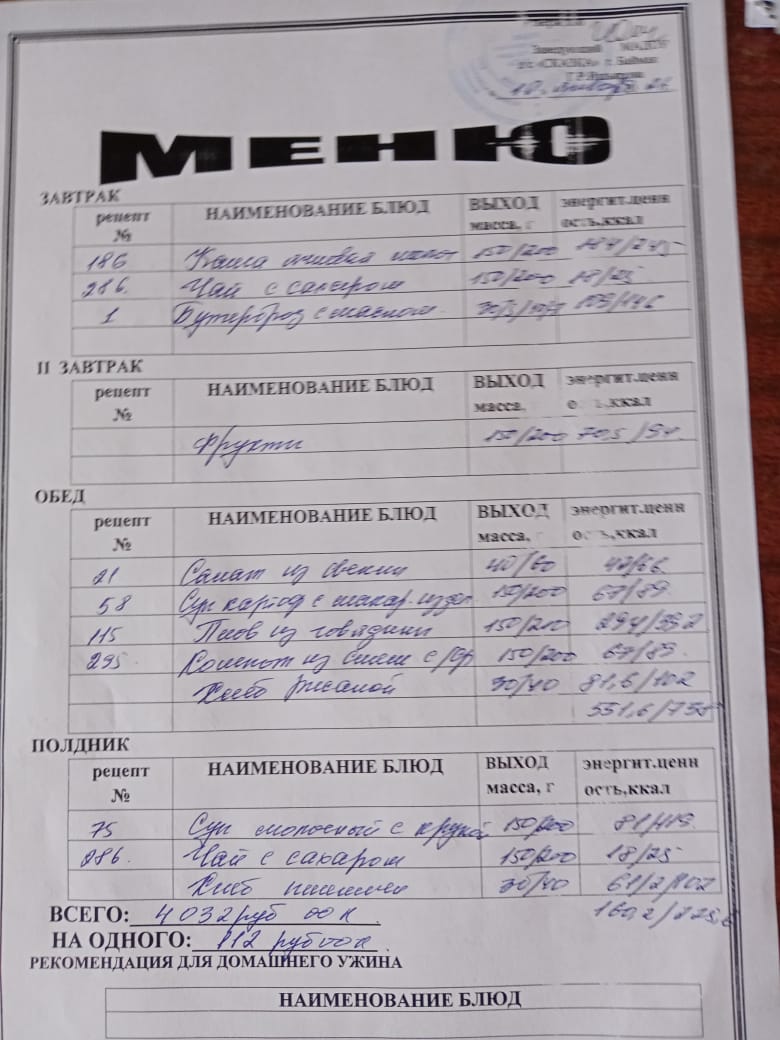 Заведующий МАДОУ
д/с «СКАЗКА» г. Баймак
10 января
МЕНЮ
ЗАВТРАК
рецепт № НАИМЕНОВАНИЕ БЛЮД ВЫХОД масса, г энергит.ценн ость,ккал
186 Каша 150/200 184/245
286. Чай с сахаром 150/200 18/25
1 Бутерброд с маслом 109/146
II ЗАВТРАК
рецепт № НАИМЕНОВАНИЕ БЛЮД ВЫХОД масса, г энергит.ценн ость,ккал
Фрукты 150/200 70,5/94
ОБЕД
рецепт № НАИМЕНОВАНИЕ БЛЮД ВЫХОД масса, г энергит.ценн ость,ккал
21 Салат из свеклы 40/60 42/66
58 Суп картоф с макар. издел 150/200 67/89
115 Плов из говядины 150/200 294/392
295 Компот из смеси с/фр 150/200 67/89
Хлеб ржаной 30/40 81,6/102
551,6/738
ПОЛДНИК
рецепт № НАИМЕНОВАНИЕ БЛЮД ВЫХОД масса, г энергит.ценн ость,ккал
75 Суп молочный с крупой 150/200
286. Чай с сахаром 150/200 18/25
Хлеб пшеничн 30/40 61/2/102
ВСЕГО: 4 032 руб 00 к
НА ОДНОГО: 112 руб 00 к
РЕКОМЕНДАЦИЯ ДЛЯ ДОМАШНЕГО УЖИНА
НАИМЕНОВАНИЕ БЛЮД